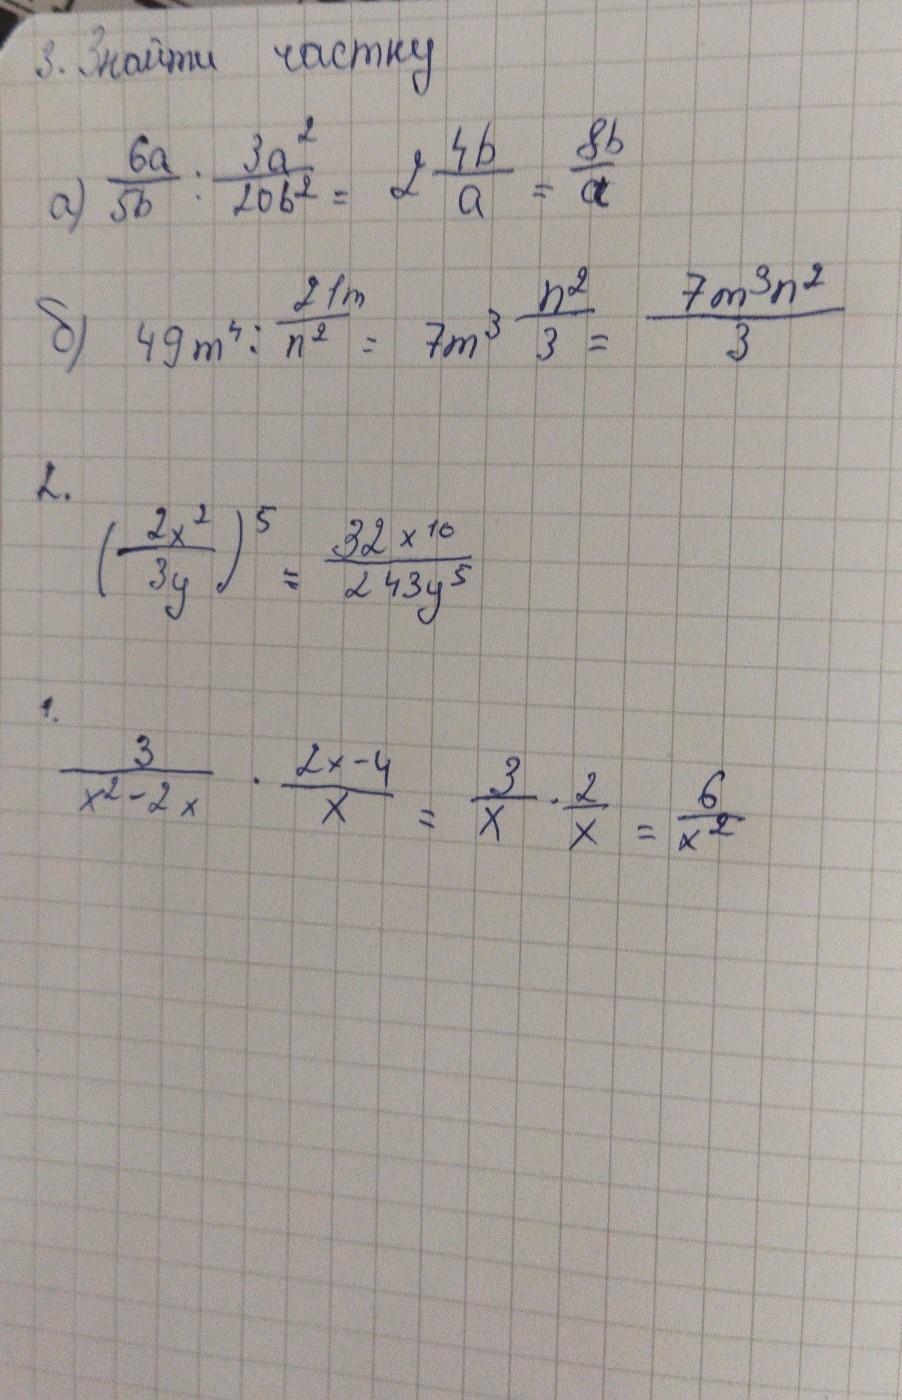 3. Знайти частку
а) 6a/5b : 3a²/20b² = 2 4b/a = 8b/a
б) 49m⁴ : 21m/n² = 7m³ n²/3 = 7m³n²/3
2.
(2x²/3y)⁵ = 32x¹⁰/243y⁵
1.
3/x²-2x · 2x-4/x = 3/x · 2/x = 6/x²